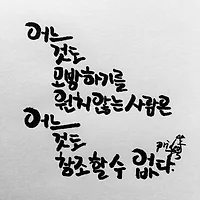 어느
것도
모방하기를
원치 않는 사람은
어느
것도
창조할 수 없다.